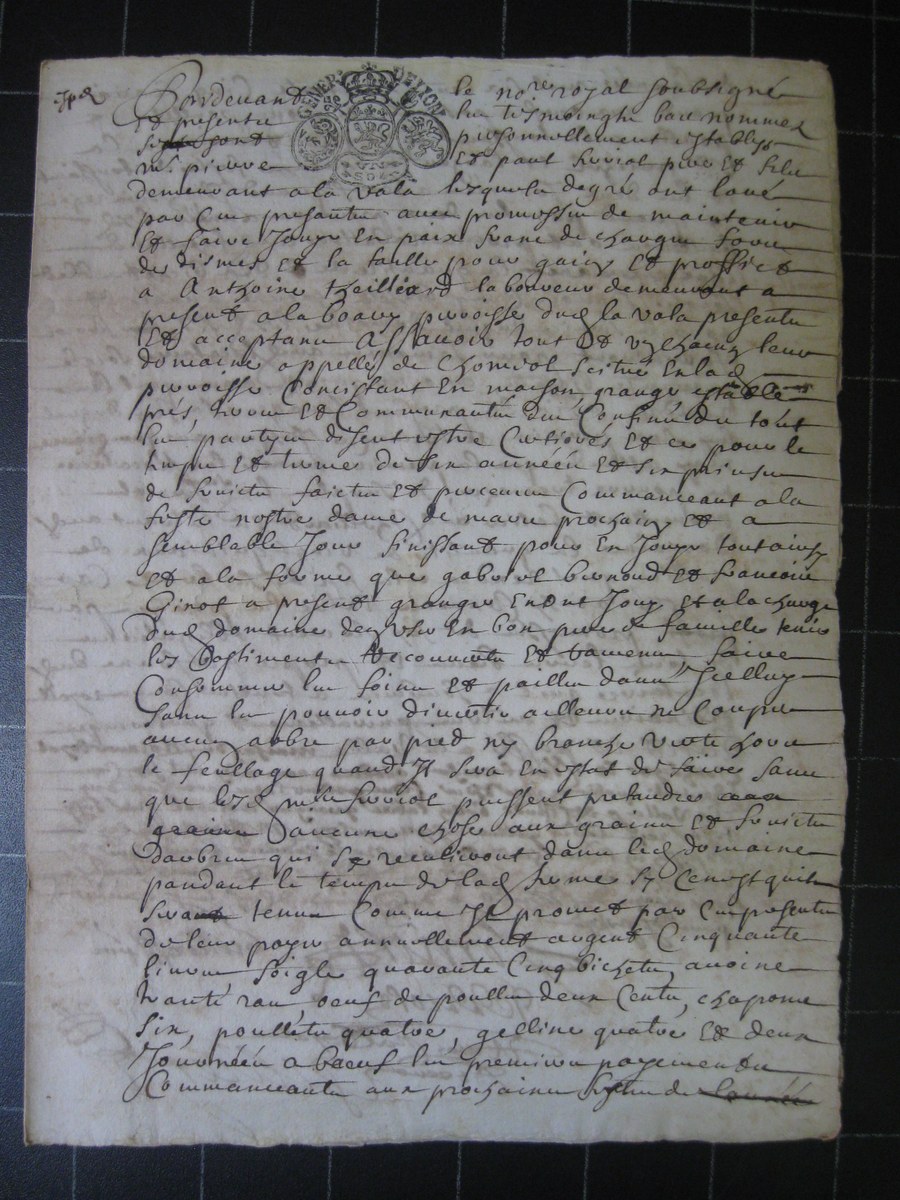 Pardevant le no.re royal soubsigné
Et presents les tesmoingts bas nommes
furent personnellement establys
m.re pierre Et paul pere Et filz
demeurant a la vala lesquels de gré ont loué
par Ces presantes avec promesses de maintenir
Et faire Jouyr En paix franc de charges fors
des dismes Et la taille pour gaing Et proffict
a Anthoine theilliard laboureur demeurant a
present a la beaux paroisse dud la vala present
Et acceptant Assavoir tout Et Ung chacung leur
domaine appellés de Chomiol scittué En lad
parroisse Consistant En maison, grange estable
prés, terres Et Communautés des Confins du tout
les partyes disent estre Certiores Et ce pour le
temps Et terme de six années Et six prinses
de fruicts faicts Et parceus Commanceant a la
feste nostre dame de mars prochain Et a
semblable Jour finissant pour En Jouyr tout ainsy
Et a la forme que gabriel bernond Et francois
Ginot a present grangers En ont Jouy Et a la charge
dud domaine de user En bon pere de famille tenir
les Bastiments recouverts Et faire
Consommer les foins Et pailles dans Icelluy
sans les pouvoir divertir ailleurs ne Couper
aucung arbre par pied ny branche verte hors
le feuillage quand Il sera En estat de faire sans
que lesd puissent pretendre
aucune chose aux grains Et fruicts
darbres qui se recullieront dans led domaine
pandant le temps de lad ferme
tenu Comme Il promet par Ces presentes
de leur payer annuellement argent Cinquante
livres soigle quarante Cinq bichets avoine
oeufs de poulles deux Cents, chapons
six, poullets quatre, gelline quatre Et deux
Journées a boeufs les premiers payements
Commanceants aux prochaines festes de
GENER DE LYON